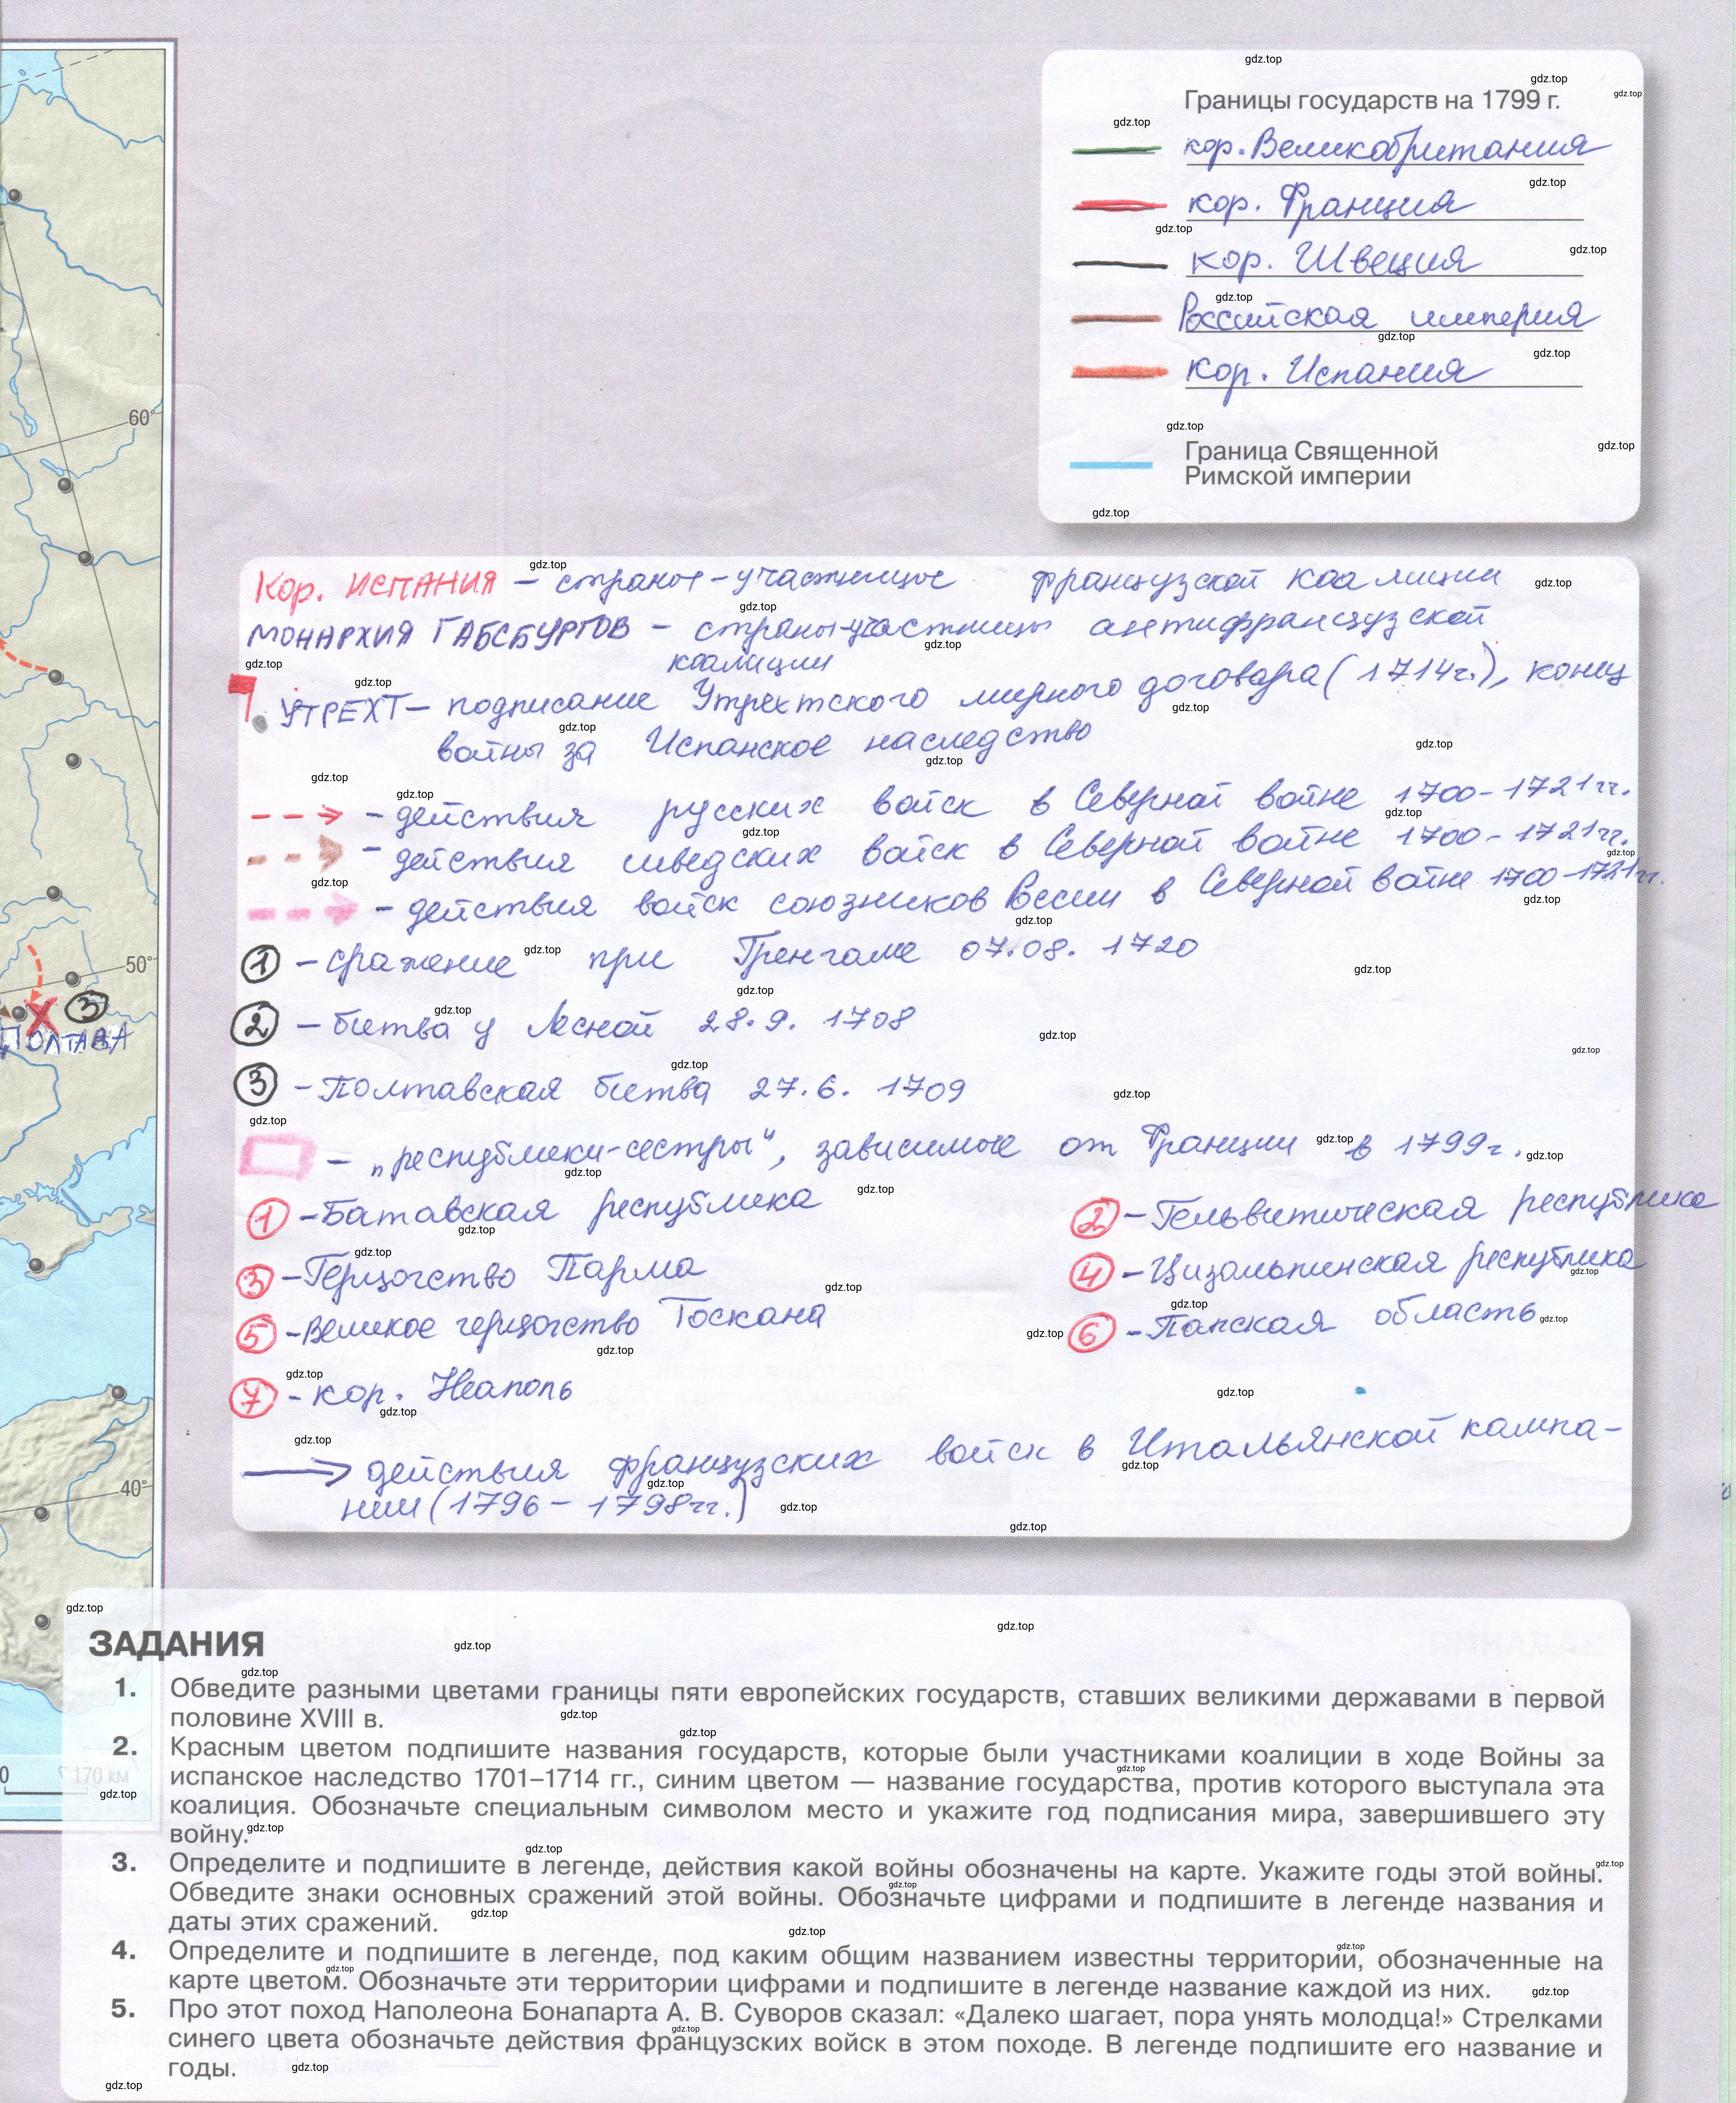 Границы государств на 1799 г.
кор. Великобритания
кор. Франция
кор. Швеция
Российская империя
кор. Испания
Граница Священной
Римской империи
60°
50°
40°
③
ПОЛТАВА
0 170 км
Кор. ИСПАНИЯ – страны-участницы французской коалиции
МОНАРХИЯ ГАБСБУРГОВ – страны-участницы антифранцузской
коалиции
УТРЕХТ – подписание Утрехтского мирного договора (1714г.), конец
войны за Испанское наследство
– действия русских войск в Северной войне 1700-1721гг.
– действия шведских войск в Северной войне 1700-1721гг.
– действия войск союзников России в Северной войне 1700-1721гг.
① – сражение при Гренгаме 07.08. 1720
② – битва у Лесной 28.9. 1708
③ – Полтавская битва 27.6. 1709
– „республики-сестры“, зависимые от Франции в 1799г.
① – Батавская республика ② – Гельвитическая республика
③ – Герцогство Парма ④ – Цизальпинская республика
⑤ – Великое герцогство Тоскана ⑥ – Папская область
⑦ – кор. Неаполь
действия французских войск в Итальянской кампа-
нии (1796 – 1798гг.)
ЗАДАНИЯ
1. Обведите разными цветами границы пяти европейских государств, ставших великими державами в первой
половине XVIII в.
2. Красным цветом подпишите названия государств, которые были участниками коалиции в ходе Войны за
испанское наследство 1701–1714 гг., синим цветом — название государства, против которого выступала эта
коалиция. Обозначьте специальным символом место и укажите год подписания мира, завершившего эту
войну.
3. Определите и подпишите в легенде, действия какой войны обозначены на карте. Укажите годы этой войны.
Обведите знаки основных сражений этой войны. Обозначьте цифрами и подпишите в легенде названия и
даты этих сражений.
4. Определите и подпишите в легенде, под каким общим названием известны территории, обозначенные на
карте цветом. Обозначьте эти территории цифрами и подпишите в легенде название каждой из них.
5. Про этот поход Наполеона Бонапарта А. В. Суворов сказал: «Далеко шагает, пора унять молодца!» Стрелками
синего цвета обозначьте действия французских войск в этом походе. В легенде подпишите его название и
годы.
gdz.top